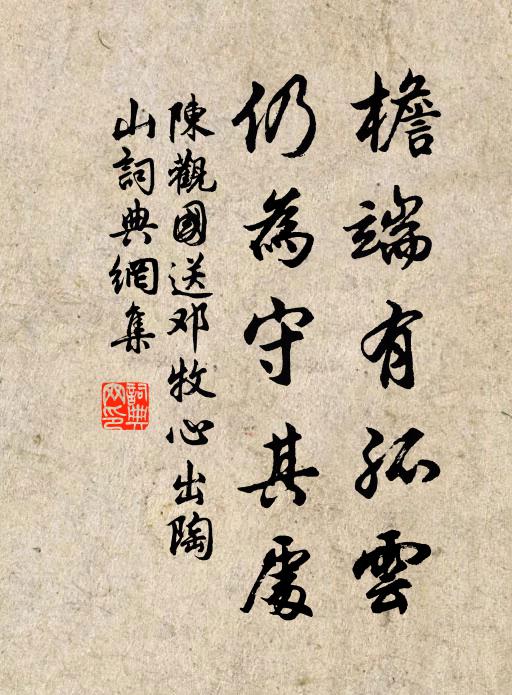 檐端有孤雲
仍為守其處
陳觀國送邓牧心出陶
山詞典網集
詞典
网印